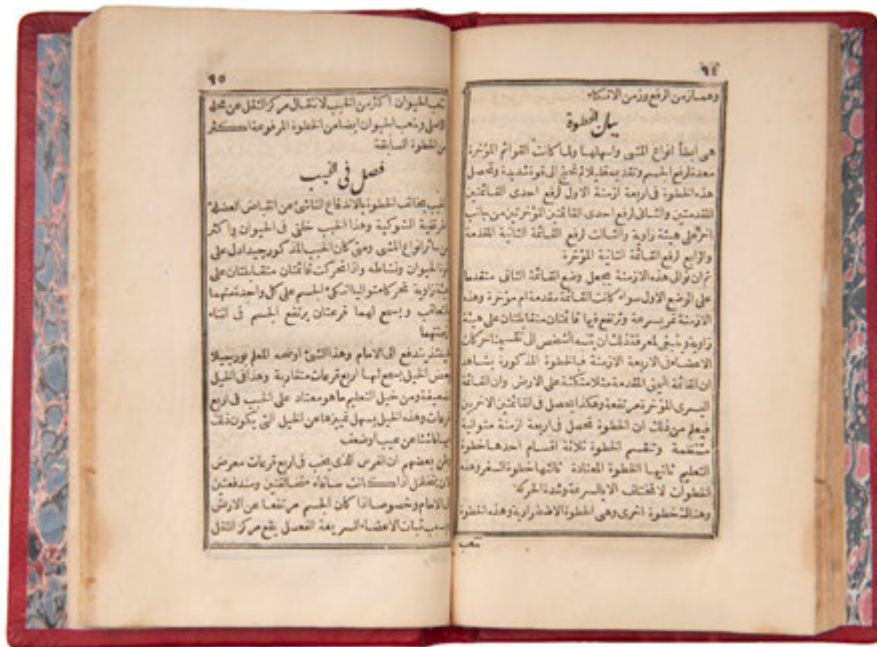 ٩٤
وهما زمن الرفع وزمن الاتكاء
بيان الخطوة
هى ابطأ انواع المشى واسهلها ولما كانت القوائم المؤخرة
معدة لرفع الجسم وتقديمه قليلا لم تحتج الى قوة شديدة وتحصل
هذه الخطوة فى اربعة ازمنة الاول لرفع احدى القائمتين
المقدمتين والثانى لرفع احدى القائمتين المؤخرتين من جانب
آخر على هيئة زاوية والثالث لرفع القائمة الثانية المقدمة
والرابع لرفع القائمة الثانية المؤخرة
ثم ان توالى هذه الازمنة يجعل وضع القائمة الثانى متقدما
على الوضع الاول سواء كانت القائمة مقدمة ام مؤخرة وهذه
الازمنة تمر بسرعة وترتفع فيها قائمتان متقاطعتان على هيئة
زاوية وينبغى لمعرفة ذلك ان ينتبه الشخص الى حركات
الاعضاء فى الاربعة الازمنة فبالخطوة المذكورة يشاهد
ان القائمة اليمنى المقدمة مثلا متكئة على الارض وان القائمة
اليسرى المؤخرة مرتفعة وهكذا يحصل فى القائمتين الاخريين
فيعلم من ذلك ان الخطوة تحصل فى اربعة ازمنة متوالية
منتظمة وتنقسم الخطوة ثلاثة اقسام احدها خطوة
التعليم ثانيها الخطوة المعتادة ثالثها خطوة السفر وهذه
الخطوات لا تختلف الا بالسرعة وشدة الحركة
وهناك خطوة اخرى وهى الخطوة الاضطرارية وهذه الخطوة
تتعب
٩٥
تتعب الحيوان اكثر من الخبب لانتقال مركز الثقل عن محله
الاصلى وتتعب الحيوان ايضا من الخطوة المرفوعة اكثر
من الخطوة السابقة
فصل فى الخبب
الخبب يخالف الخطوة بالاندفاع الناشئ عن انقباض العضلة
الحرقفية الشوكية وهذا الخبب خلقى فى الحيوان واكثر
من سائر انواع المشى ومتى كان الخبب المذكور جيدا دل على
قوة الحيوان ونشاطه واذا تحركت قائمتان متقاطعتان على
هيئة زاوية تحركا متواليا اتكئ الجسم على كل واحدة منهما
بالتعاقب ويسمع لهما قرعتان يرتفع الجسم فى اثناء
زمنهما
فينئذ يندفع الى الامام وهذا الشئ اوضحه المعلم بورجيلا
وبعض الخيل يسمع لها اربع قرعات متقاربة وهذا فى الخيل
الضعيفة ومن خيل التعليم ما هو معتاد على الخبب فى اربع
قرعات وهذه الخيل يسهل تمييزها عن الخيل التى يكون ذلك
فيها ناشئا عن عيب او ضعف
وظن بعضهم ان الفرس الذى يخب فى اربع قرعات معرض
لان يتخلخل اذا كانت ساقاه متخالفتين ومندفعتين
الى الامام وخصوصا اذا كان الجسم مرتفعا عن الارض
وبسبب ثبات الاعضاء السريعة الفصل يقع مركز الثقل